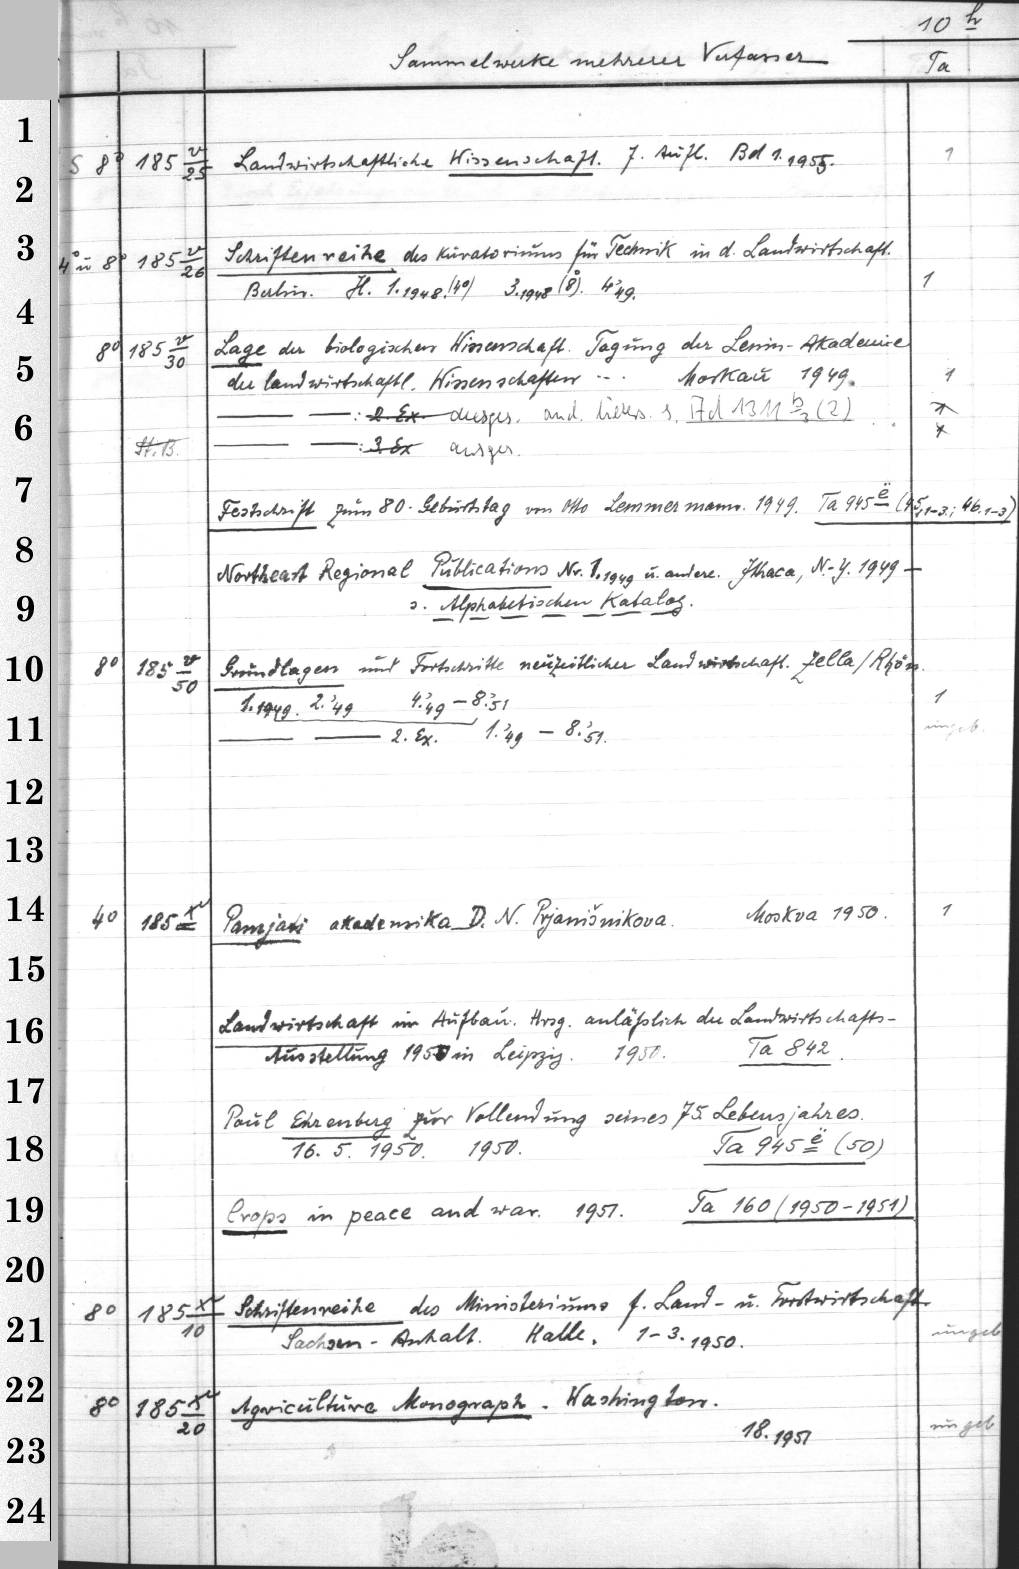 10 h
Sammelwerke mehrerer Verfasser Ta
1
S 8° 185 v/25 Landwirtschaftliche Wissenschaft. 7. Aufl. Bd 1. 1955. 1
2
3
4° u 8° 185 v/26 Schriftenreihe des Kuratoriums für Technik in d. Landwirtschaft.
Berlin. H. 1. 1948. (4°) 3. 1948 (8°). 4.'49. 1
4
8° 185 v/30 Lage der biologischen Wissenschaft. Tagung der Lenin-Akademie
5
der landwirtschaftl. Wissenschaften ... Moskau 1949. 1
— — : 2 Ex ausges. and. s. Ad 1311 b/3 (2)
6
— — : 3. Ex ausges.
7
Festschrift zum 80. Geburtstag von Otto Lemmermann. 1949. Ta 945 ë (45, 1-3.; 46, 1-3)
8
Northeast Regional Publications Nr. 1. 1949 u. andere. Ithaca, N.-Y. 1949 —
9
s. Alphabetischen Katalog.
10
8° 185 v/50 Grundlagen und Fortschritte neuzeitlicher Landwirtschaft. Zella/Rhön.
1. 1949. 2.'49 4.'49 — 8.'51 1
11
— — 2. Ex. 1.'49 — 8.'51. ungeb.
12
13
14
4° 185 x Pamjati akademika D. N. Prjanišnikova. Moskva 1950. 1
15
16
Landwirtschaft im Aufbau. Hrsg. anläßlich der Landwirtschafts-
Ausstellung 1950 in Leipzig. 1950. Ta 842.
17
Paul Ehrenberg zur Vollendung seines 75. Lebensjahres.
18
16. 5. 1950. 1950. Ta 945 ë (50)
19
Crops in peace and war. 1951. Ta 160 (1950-1951)
20
8° 185 x/10 Schriftenreihe des Ministeriums f. Land- u. Forstwirtschaft
21
Sachsen-Anhalt. Halle. 1-3. 1950. ungeb
22
8° 185 x/20 Agriculture Monograph. Washington.
18. 1951 ungeb
23
24